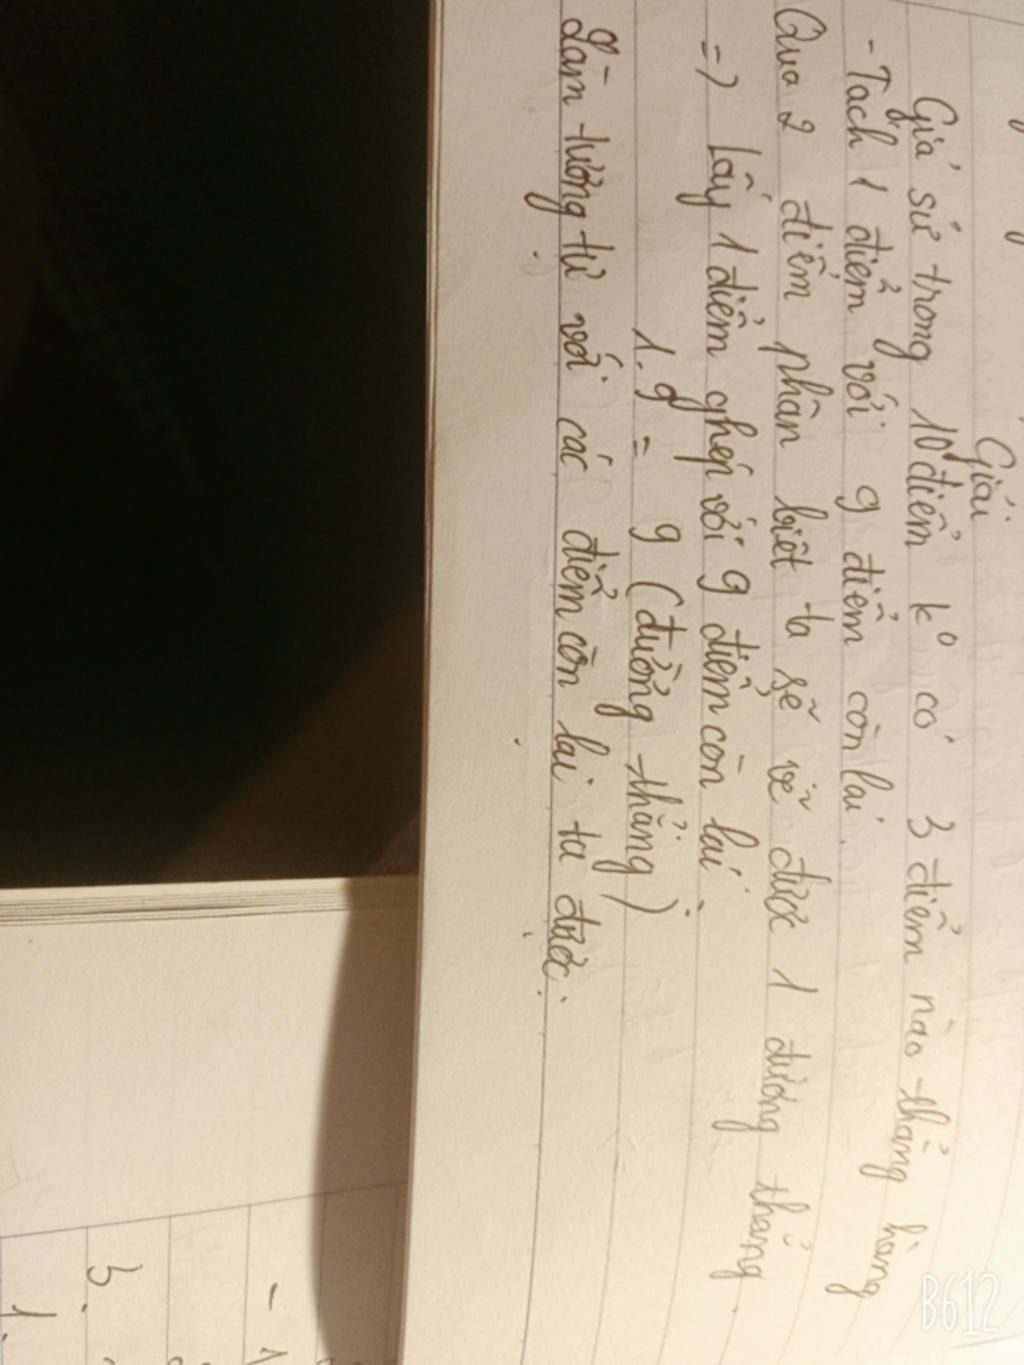 Giải
Giả sử trong 10 điểm k° có 3 điểm nào thẳng hàng
- Tách 1 điểm với 9 điểm còn lại.
Qua 2 điểm phân biệt ta sẽ vẽ được 1 đường thẳng.
=) Lấy 1 điểm ghép với 9 điểm còn lại.
1.9 = 9 (đường thẳng)
Làm tương tự với các điểm còn lại ta được:
-
3.
1.
B612